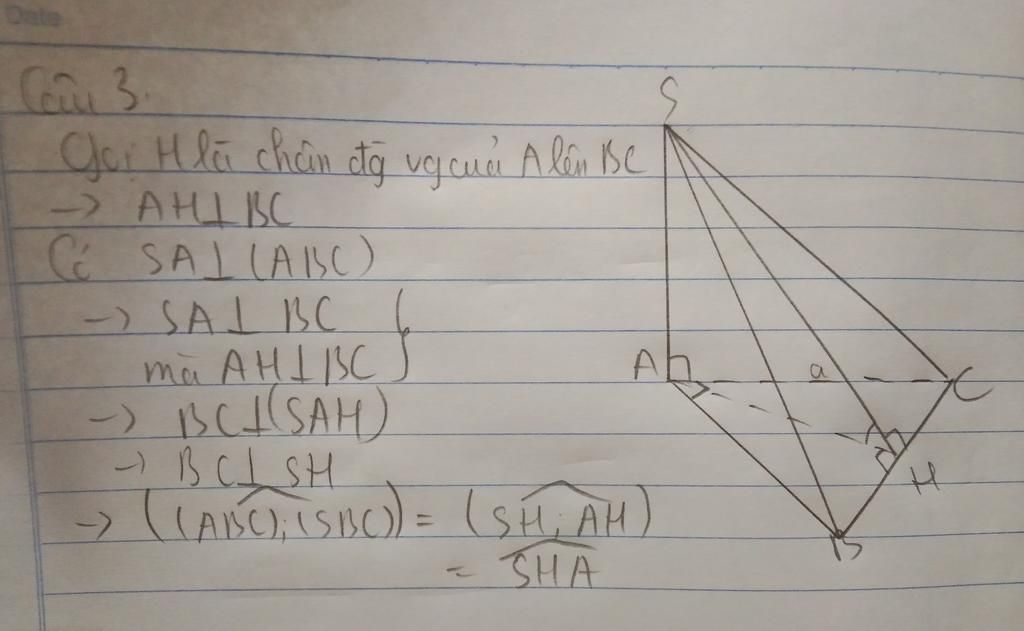 Date
Câu 3.
Gọi H là chân đg vg của A lên BC
-> AH⊥BC
Có SA⊥(ABC)
-> SA⊥ BC
mà AH⊥BC }
-> BC⊥(SAH)
-> BC⊥ SH
-> ((ABC);(SBC)) = (SH; AH)
= SHA
S
A
a
C
H
B